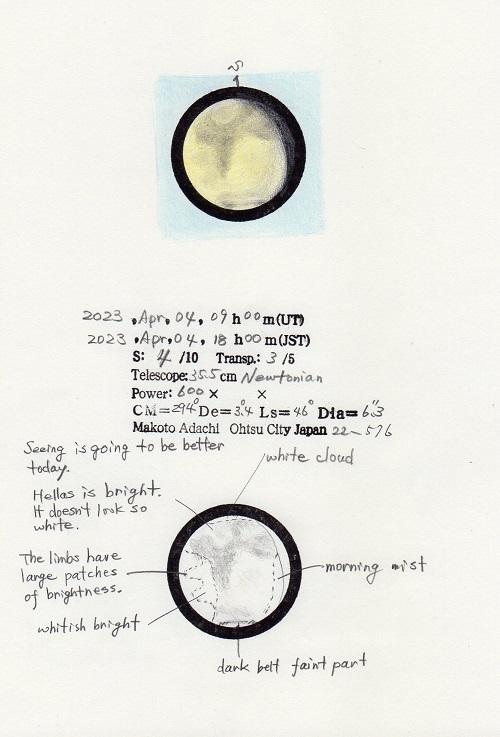 S
2023, Apr, 04, 09 h 00 m(UT)
2023, Apr, 04, 18 h 00 m(JST)
S: 4 /10 Transp.: 3 /5
Telescope: 35.5 cm Newtonian
Power: 600 × ×
CM=294° De=3.4° Ls=46° Dia=6."3
Makoto Adachi Ohtsu City Japan 22-576
Seeing is going to be better
today.
white cloud
Hellas is bright.
It doesn't look so
white.
The limbs have
large patches
of brightness.
morning mist
whitish bright
dark belt faint part